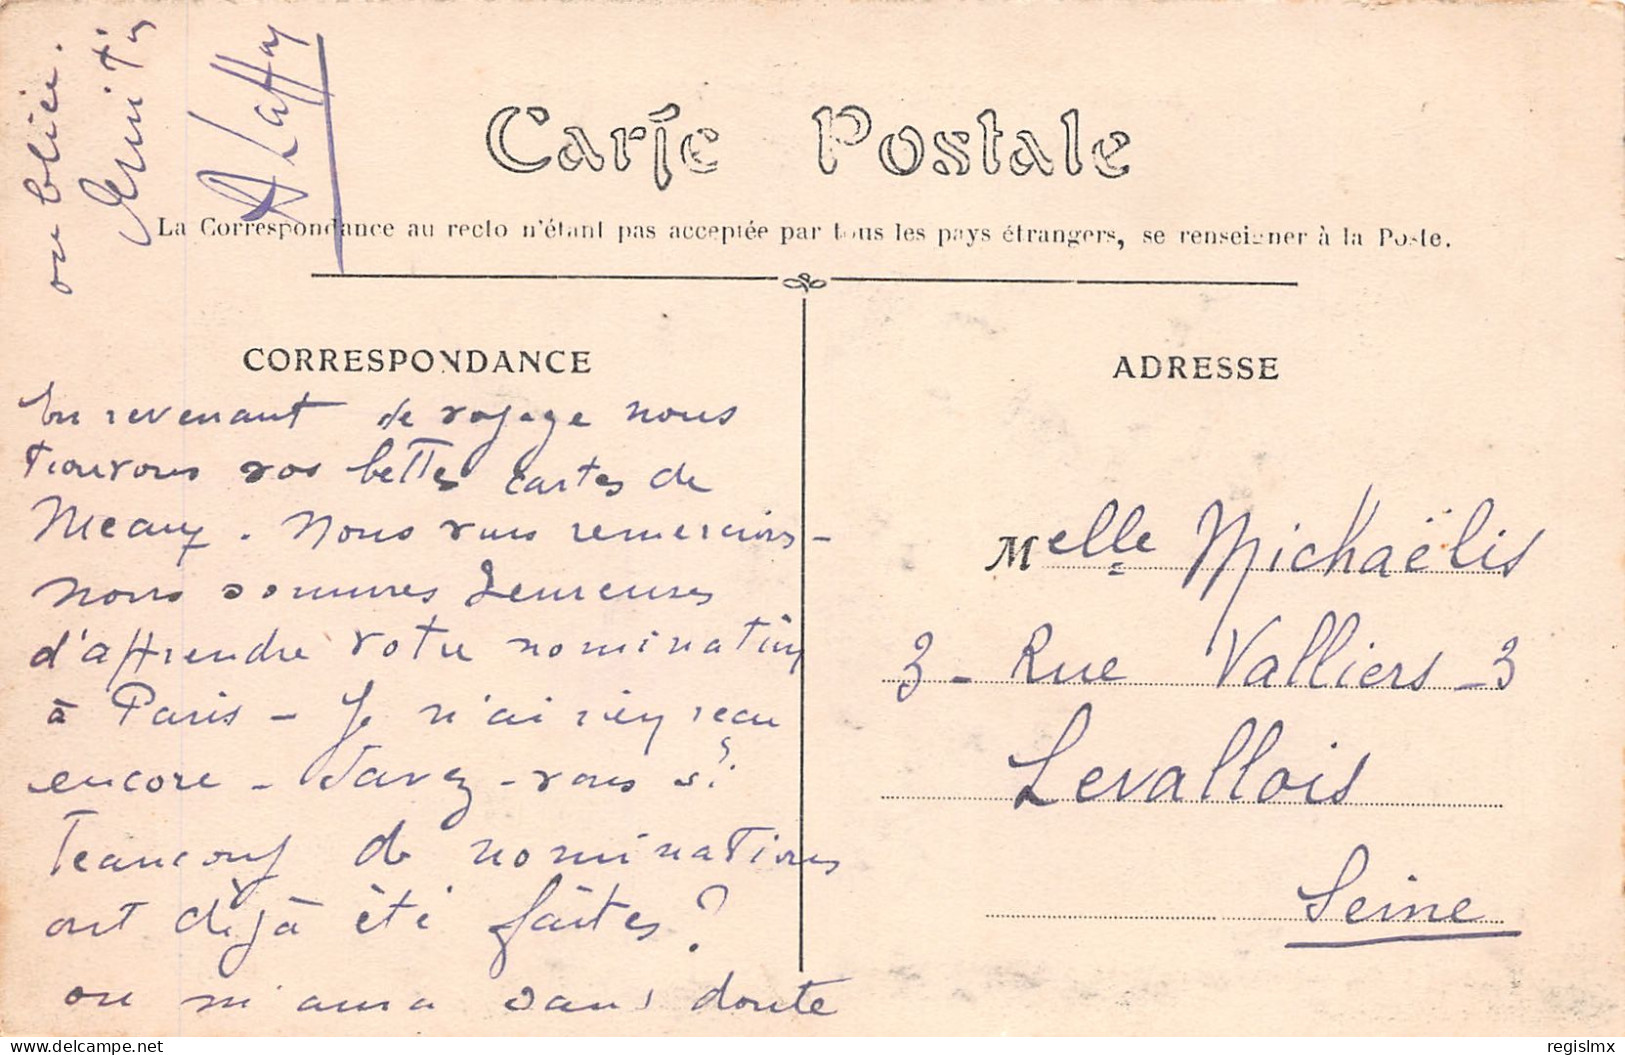 Carte Postale
La Correspondance au recto n'étant pas acceptée par tous les pays étrangers, se renseigner à la Poste.
CORRESPONDANCE
En revenant de voyage nous
trouvons vos belles cartes de
Meaux. Nous vous remercions -
nous sommes heureuses
d'apprendre votre nomination
à Paris - Je n'ai rien reçu
encore - Savez-vous si
beaucoup de nominations
ont déjà été faites ?
on m'aura sans doute
oubliée.
Amitiés
A Laffay
ADRESSE
Melle Michaëlis
3 - Rue Valliers - 3
Levallois
Seine
delcampe.net
regislmx